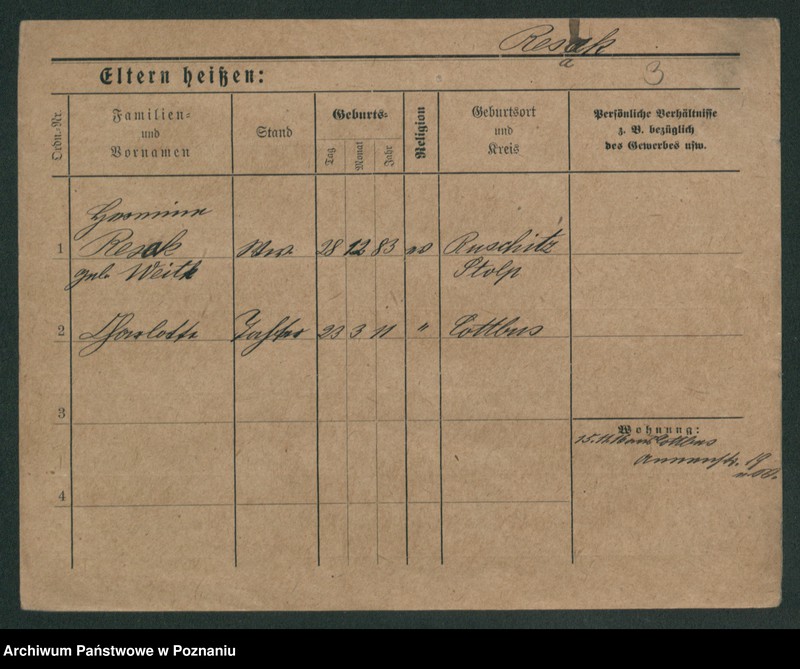 Resak
a
3
Eltern heißen:
Ordn.-Nr.
Familien-
und
Vornamen
Stand
Geburts-
Tag
Monat
Jahr
Religion
Geburtsort
und
Kreis
Persönliche Verhältnisse
z. B. bezüglich
des Gewerbes usw.
Hermine
1 Resak Ww. 28 12 83 ev Ruschitz
geb. Weitk Stolp
2 Charlotte Tochter 23 3 11 " Cottbus
3
Wohnung:
Cottbus
Annenstr. 19
4
Archiwum Państwowe w Poznaniu